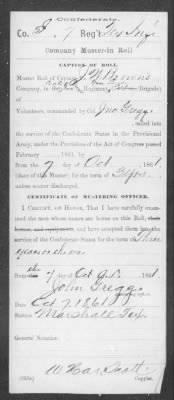 Confederate.
Co. I. 7 Reg't Tex Inf.
Company Muster-in Roll
CAPTION OF ROLL.
Muster Roll of Captain
Company, in the Regiment, Brigade)
of
Volunteers, commanded by Col. Jno Gregg
called into
the service of the Confederate States in the Provisional
Army, under the Provisions of the Act of Congress passed
February , 1861, by
From the 7 day of Oct , 1861,
(date of this muster) for the term of
unless sooner discharged.
CERTIFICATE OF MUSTERING OFFICER.
I CERTIFY, ON HONOR, That I have carefully examined
the men whose names are borne on this Roll, their
horses, and equipments, and have accepted them into the
service of the Confederate States for the term of Three
years or the war
from the 7 day of Oct A.D. 1861.
John Gregg
Mustering Officer.
Date: Oct 7 1861
Station: Marshall Tex
General Notation:
Wm
Copyist.